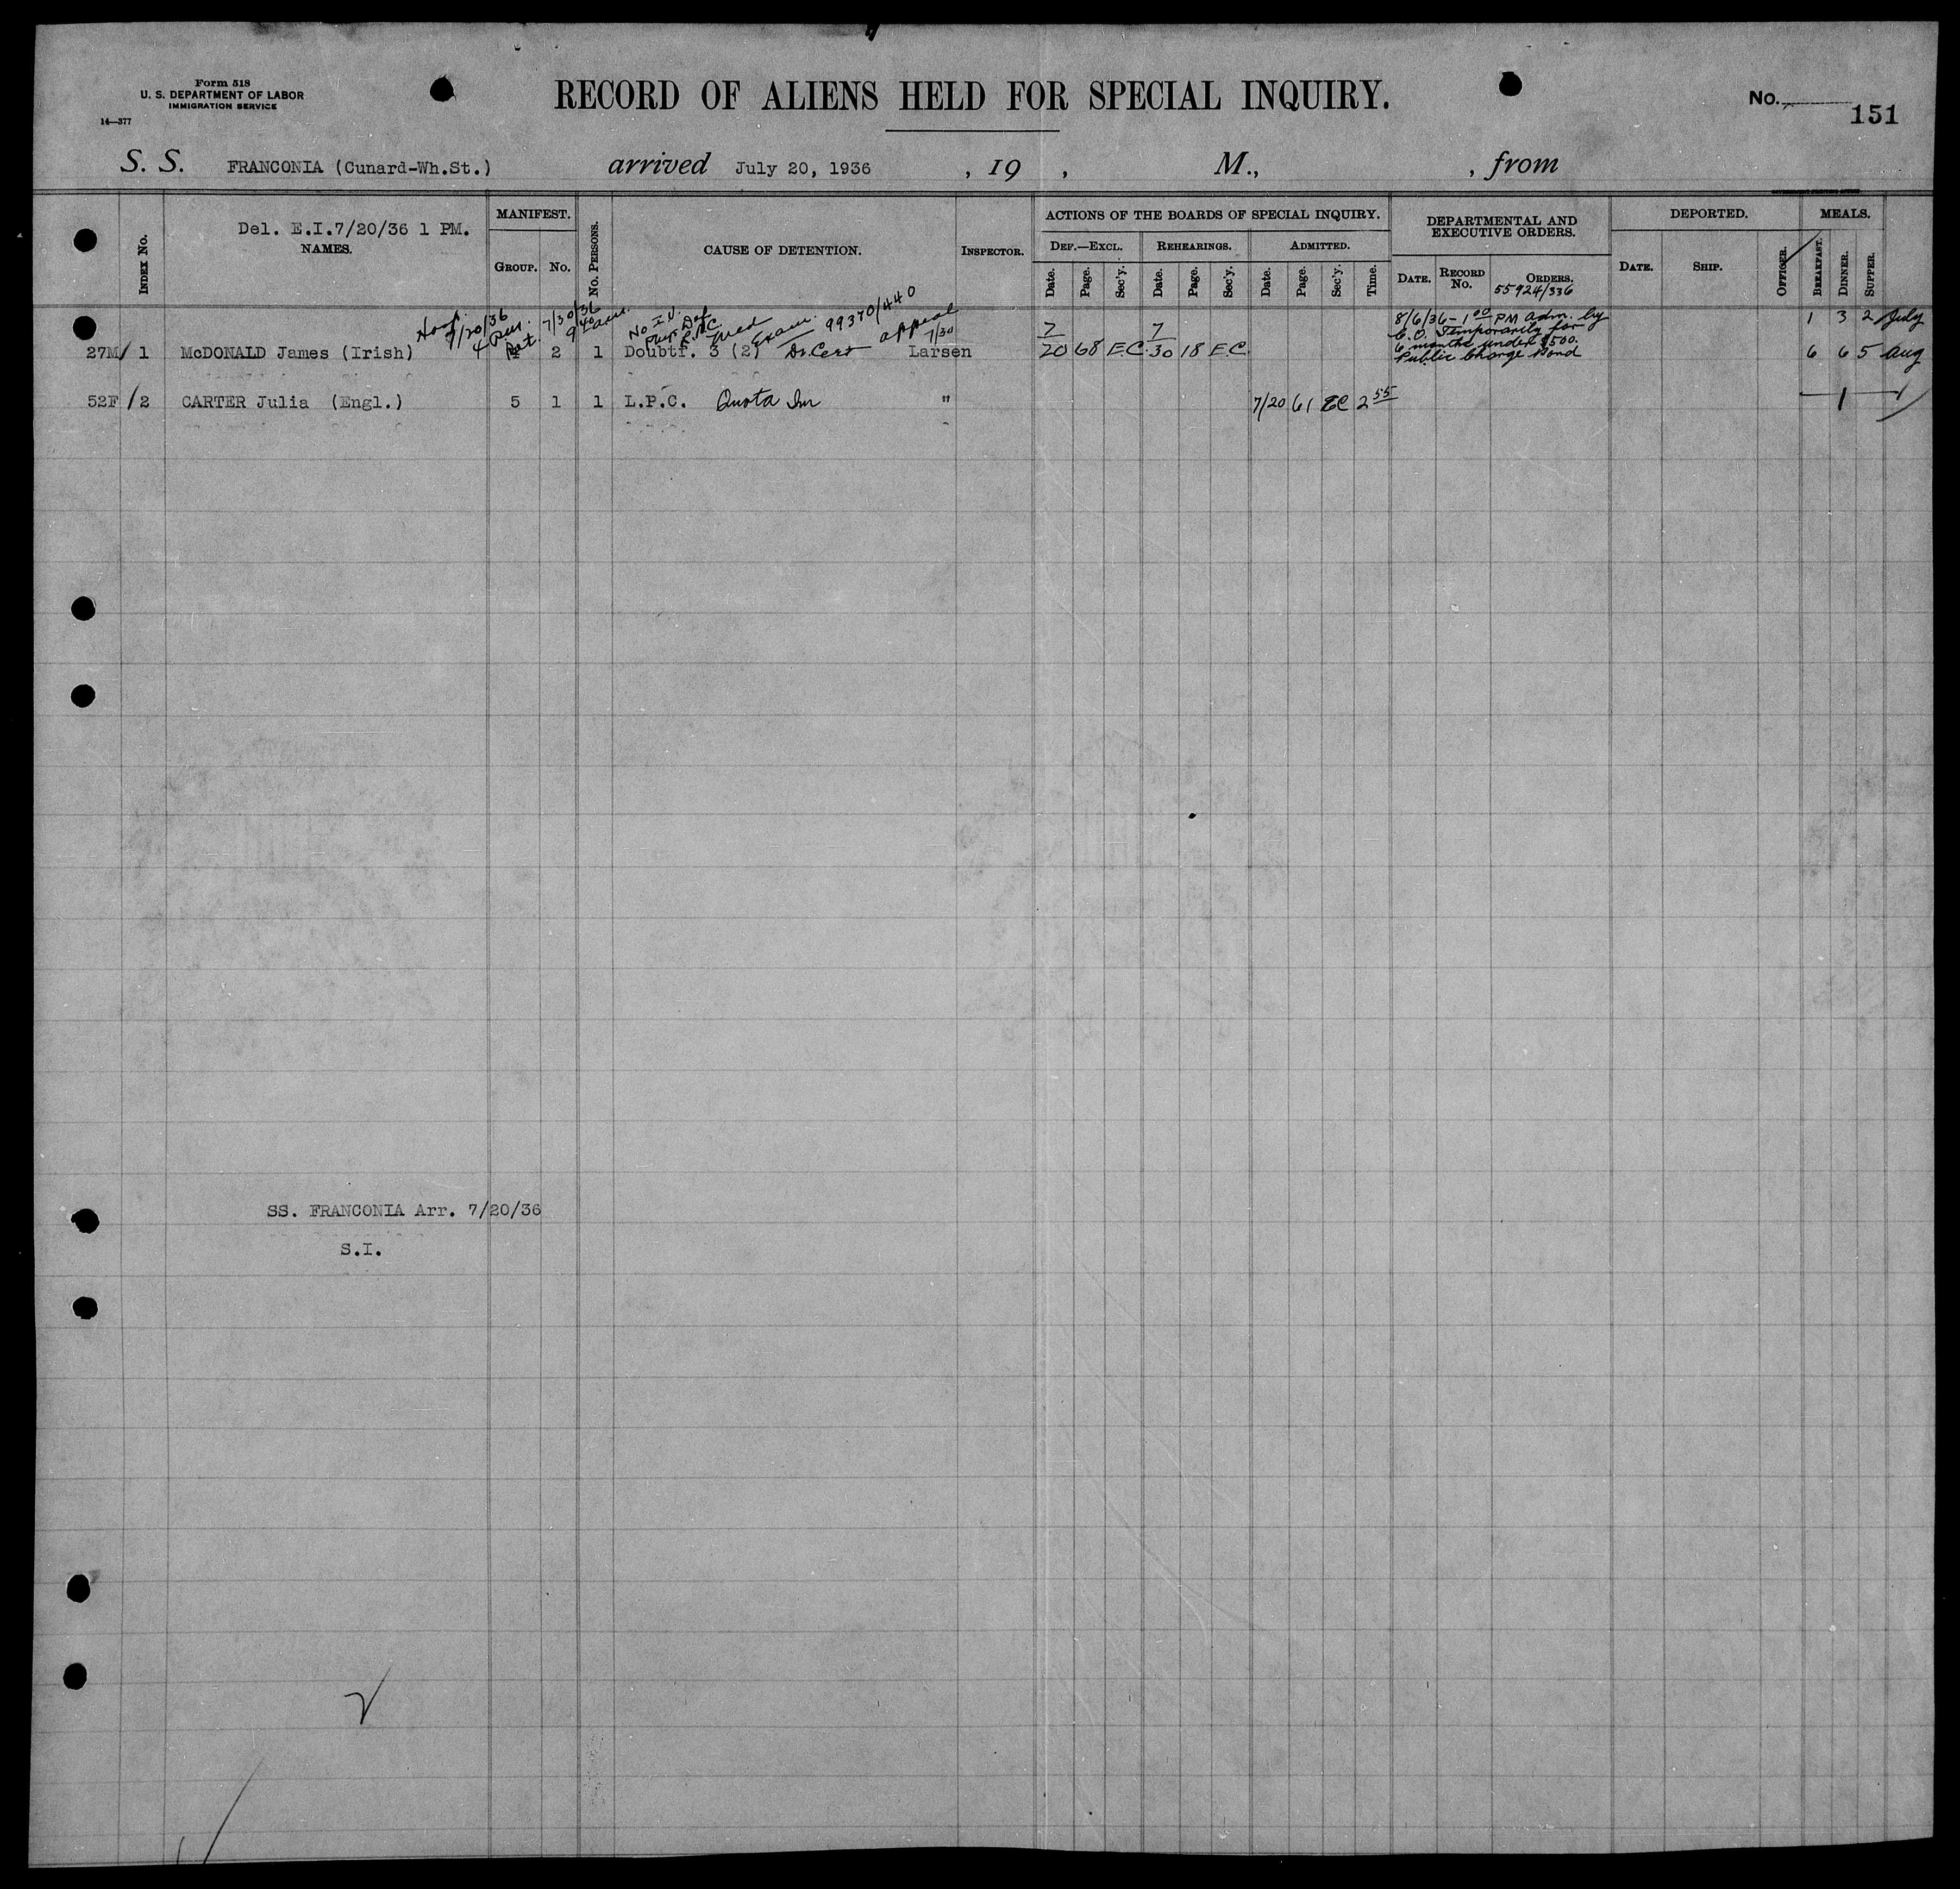 Form 518
U. S. DEPARTMENT OF LABOR
IMMIGRATION SERVICE
14—377
RECORD OF ALIENS HELD FOR SPECIAL INQUIRY.
No. 151
S. S. FRANCONIA (Cunard-Wh.St.) arrived July 20, 1936 , 19 , M., , from
Del. E.I.7/20/36 1 PM.
INDEX No. NAMES. MANIFEST. GROUP. No. No. PERSONS. CAUSE OF DETENTION. INSPECTOR.
ACTIONS OF THE BOARDS OF SPECIAL INQUIRY.
DEF.—EXCL. REHEARINGS. ADMITTED.
Date. Page. Sec'y. Date. Page. Sec'y. Date. Page. Sec'y. Time.
DEPARTMENTAL AND
EXECUTIVE ORDERS.
DATE. RECORD No. ORDERS.
55924/336
DEPORTED.
DATE. SHIP. OFFICER.
MEALS.
BREAKFAST. DINNER. SUPPER.
Hosp. 7/20/36 4 Ret. 7/30/36 9 40 am.
No I.V. L.P.C. med Exam. 99370/440 appeal 7/30
27M 1 McDONALD James (Irish) 4 2 1 Doubtf. 3 (2) Dr Cert Larsen 7/20 68 E.C. 7/30 18 E.C.
8/6/36 - 1 00 PM adm. by
Temporarily for
6 months under $500.
Public Charge Bond
1 3 2 July
6 6 5 Aug
52F 2 CARTER Julia (Engl.) 5 1 1 L.P.C. Quota Im " 7/20 61 EC 2 55 1
SS. FRANCONIA Arr. 7/20/36
S.I.